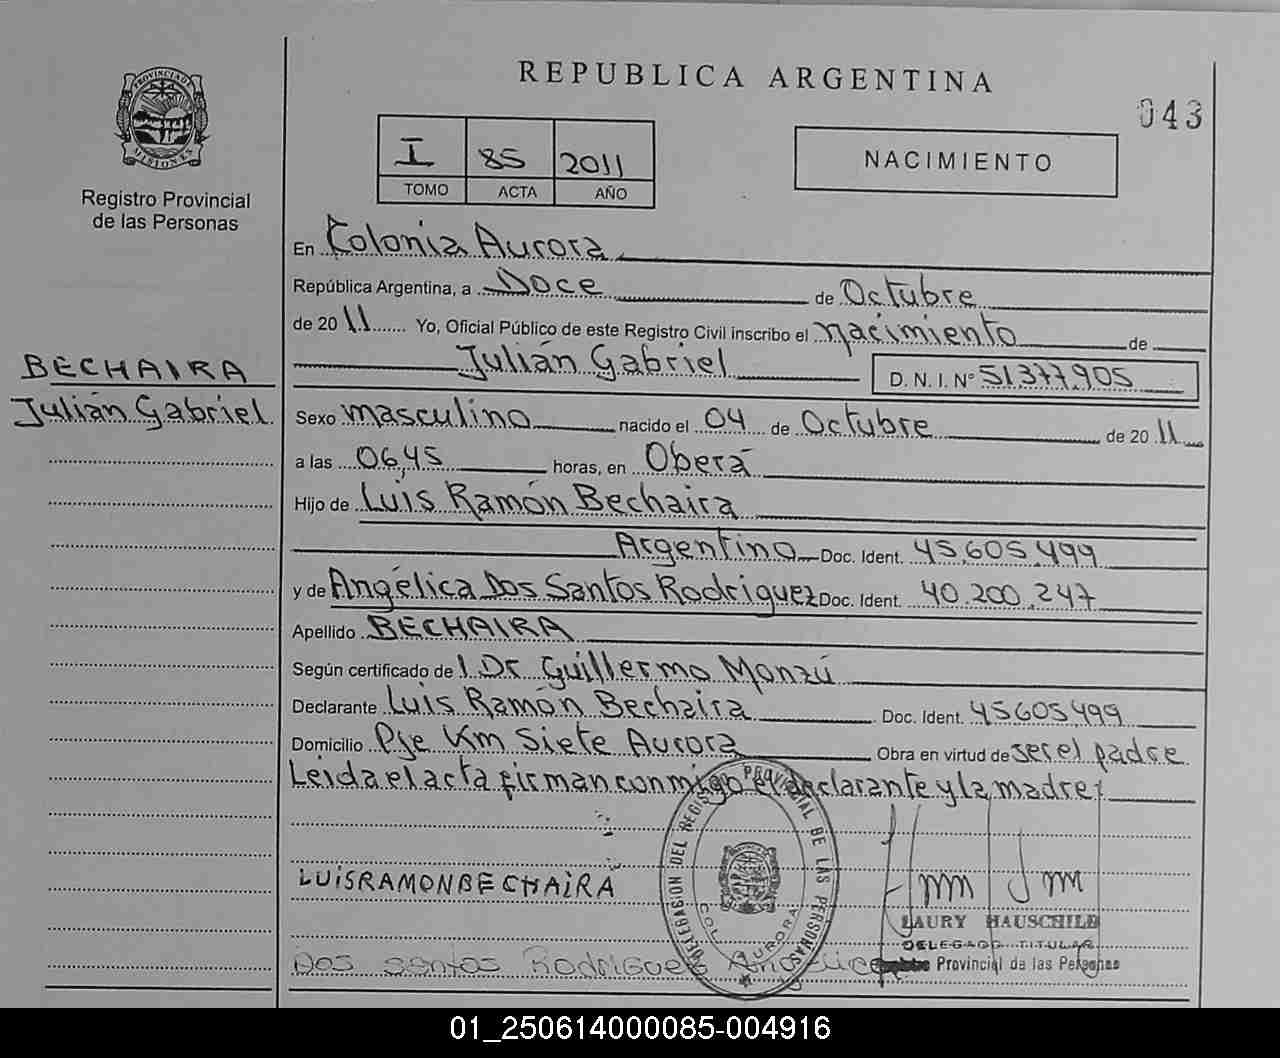 REPUBLICA ARGENTINA
043
PROVINCIA DE MISIONES
Registro Provincial
de las Personas
I 85 2011
TOMO ACTA AÑO
NACIMIENTO
En Colonia Aurora
República Argentina, a Doce de Octubre
de 2011 Yo, Oficial Público de este Registro Civil inscribo el nacimiento de
Julián Gabriel D. N. I. Nº 51.377.905
BECHAIRA
Julián Gabriel
Sexo masculino nacido el 04 de Octubre de 2011
a las 06,45 horas, en Oberá
Hijo de Luis Ramón Bechaira
Argentino Doc. Ident. 45.605.499
y de Angélica Dos Santos Rodriguez Doc. Ident. 40.200.247
Apellido BECHAIRA
Según certificado de l Dr Guillermo Monzú
Declarante Luis Ramón Bechaira Doc. Ident. 45605499
Domicilio Pje Km Siete Aurora Obra en virtud de ser el padre
Leida el acta firman conmigo el declarante y la madre;
LUISRAMONBECHAIRA
DELEGACION DEL REGISTRO PROVINCIAL DE LAS PERSONAS
COL. AURORA
LAURY HAUSCHILD
DELEGADO TITULAR
Provincial de las Personas
Dos santos Rodriguez Angelica
01_250614000085-004916